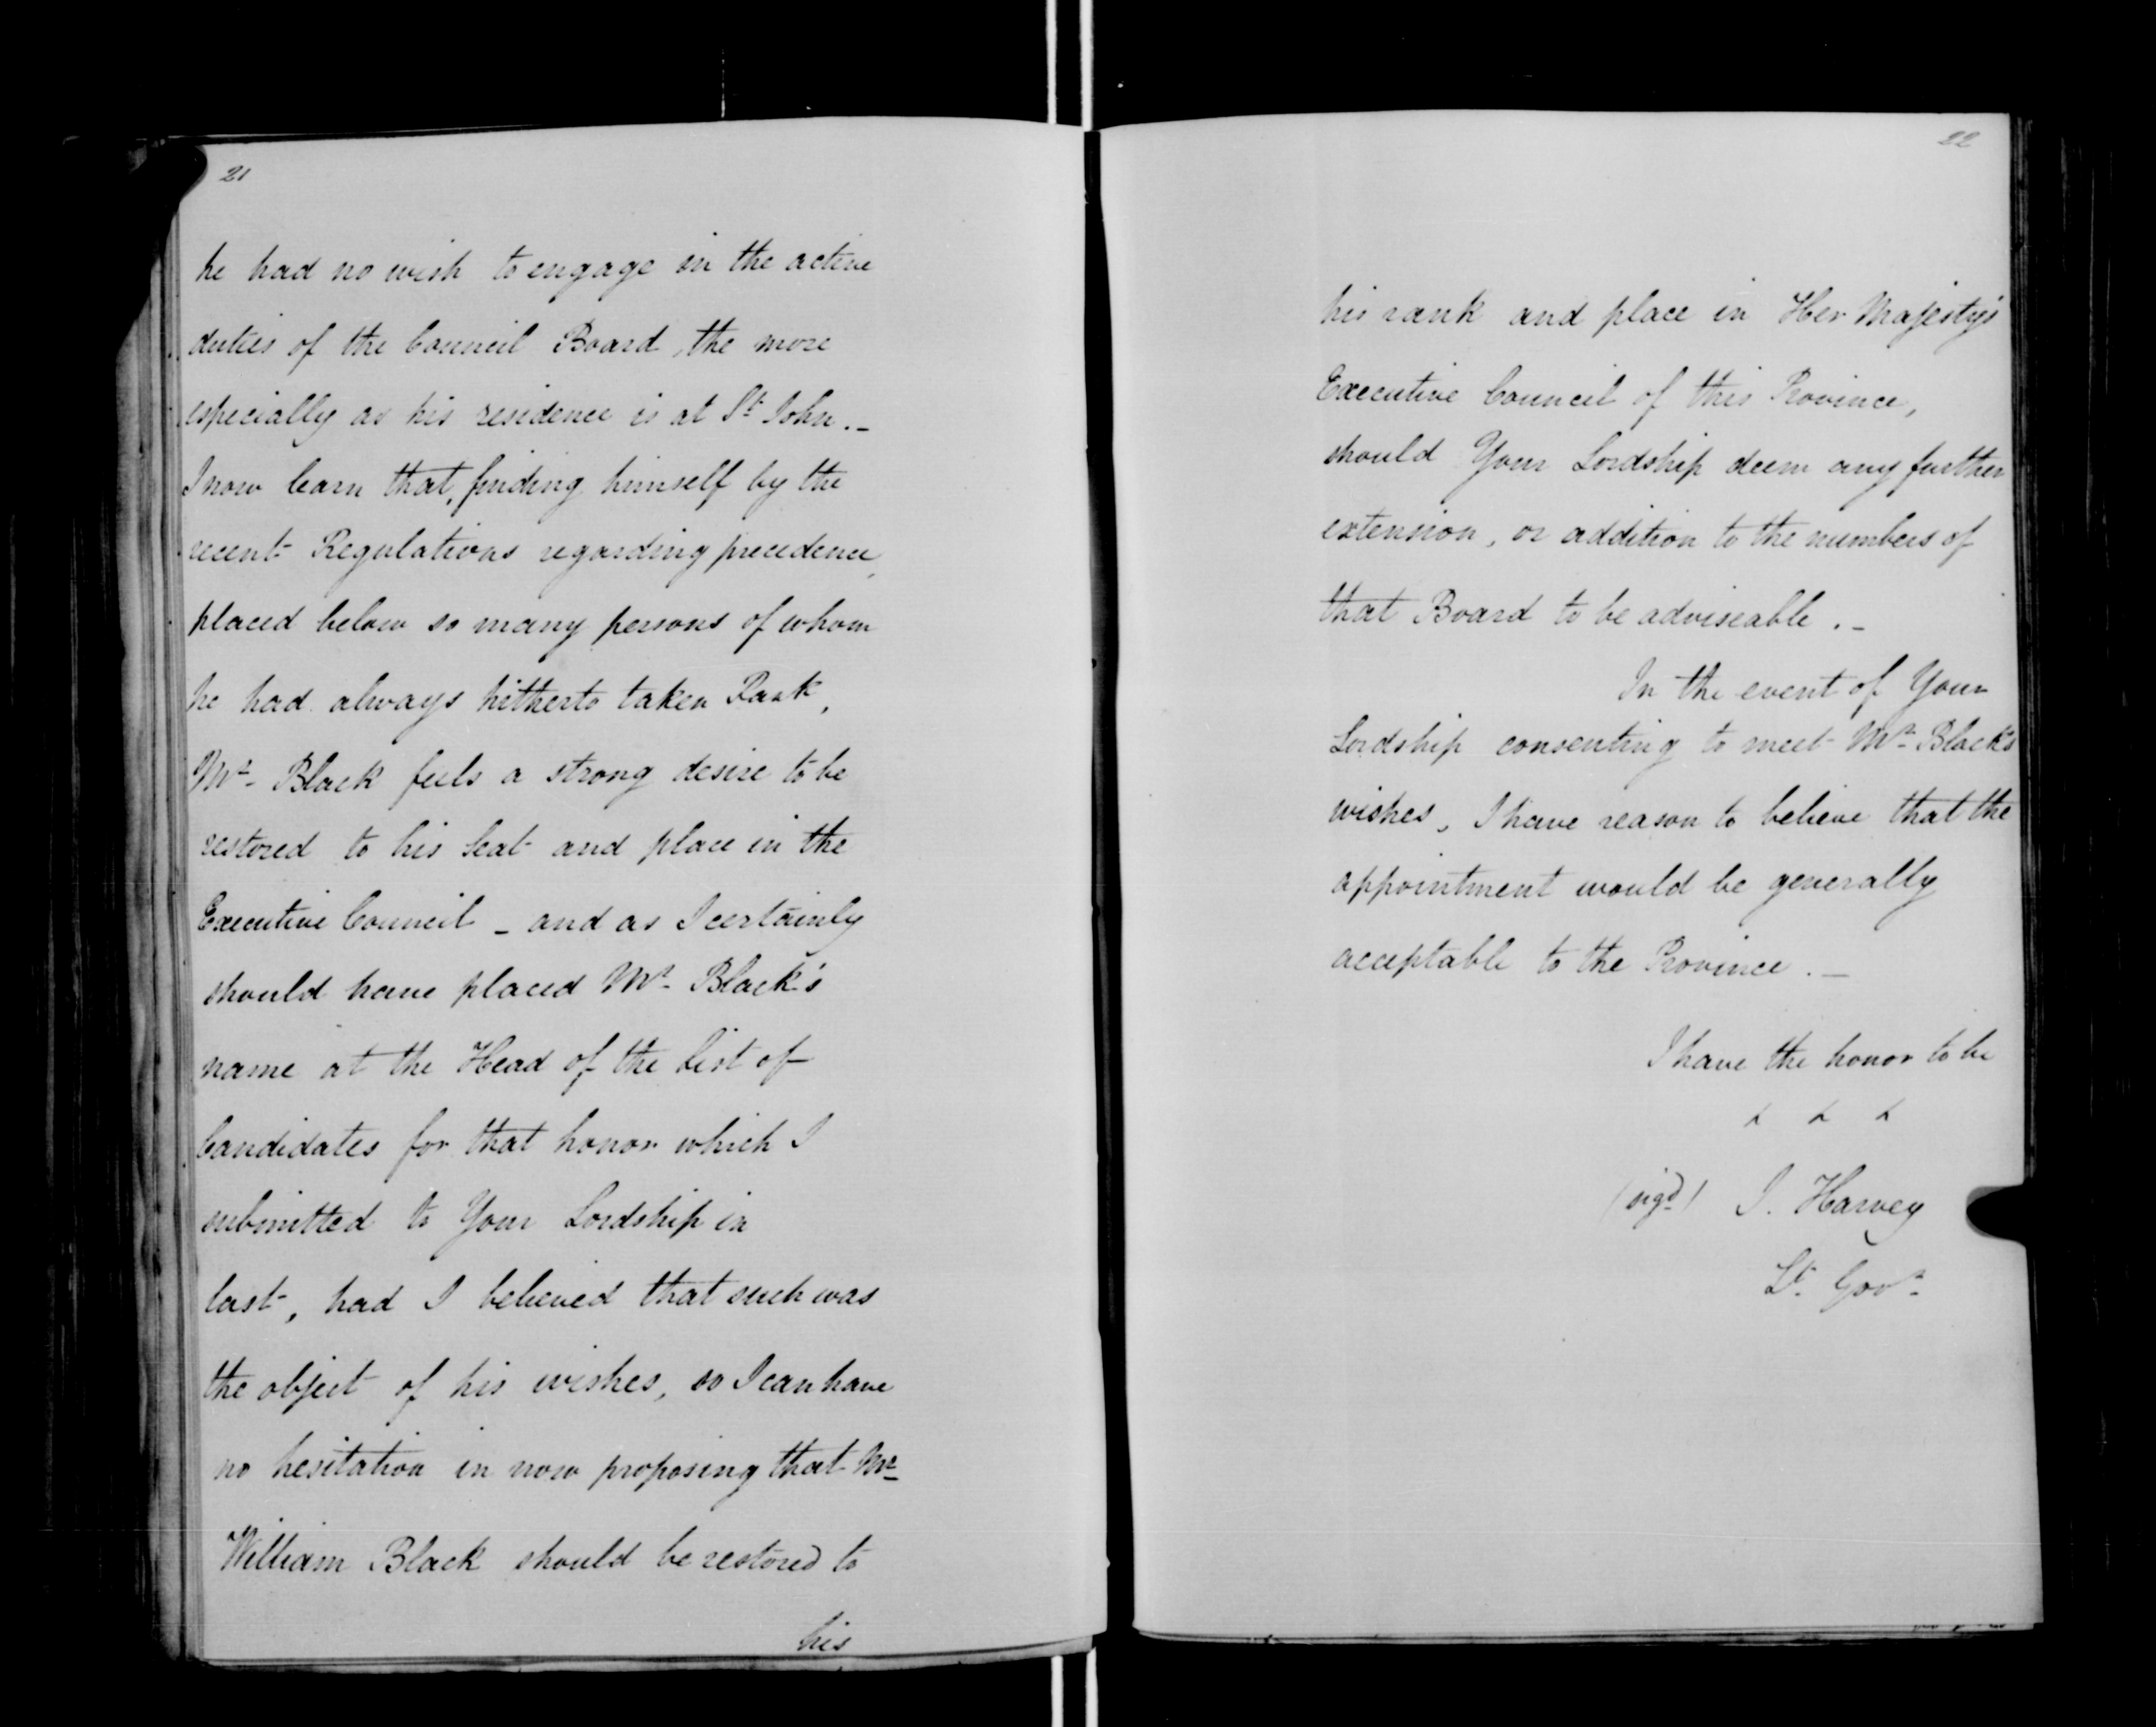 21
he had no wish to engage in the active
duties of the Council Board, the more
especially as his residence is at St. John._
I now learn that, finding himself by the
recent Regulations regarding precedence,
placed below so many persons of whom
he had always hitherto taken Rank,
Mr. Black feels a strong desire to be
restored to his Seat and place in the
Executive Council _ and as I certainly
should have placed Mr. Black's
name at the Head of the List of
Candidates for that honor which I
submitted to Your Lordship in
last, had I believed that such was
the object of his wishes, so I can have
no hesitation in now proposing that Mr.
William Black should be restored to
his
22
his rank and place in Her Majesty's
Executive Council of this Province,
should Your Lordship deem any further
extension, or addition to the numbers of
that Board to be adviseable._
In the event of Your
Lordship consenting to meet Mr. Black's
wishes, I have reason to believe that the
appointment would be generally
acceptable to the Province._
I have the honor to be
x x x
(sigd) J. Harvey
Lt. Govr.